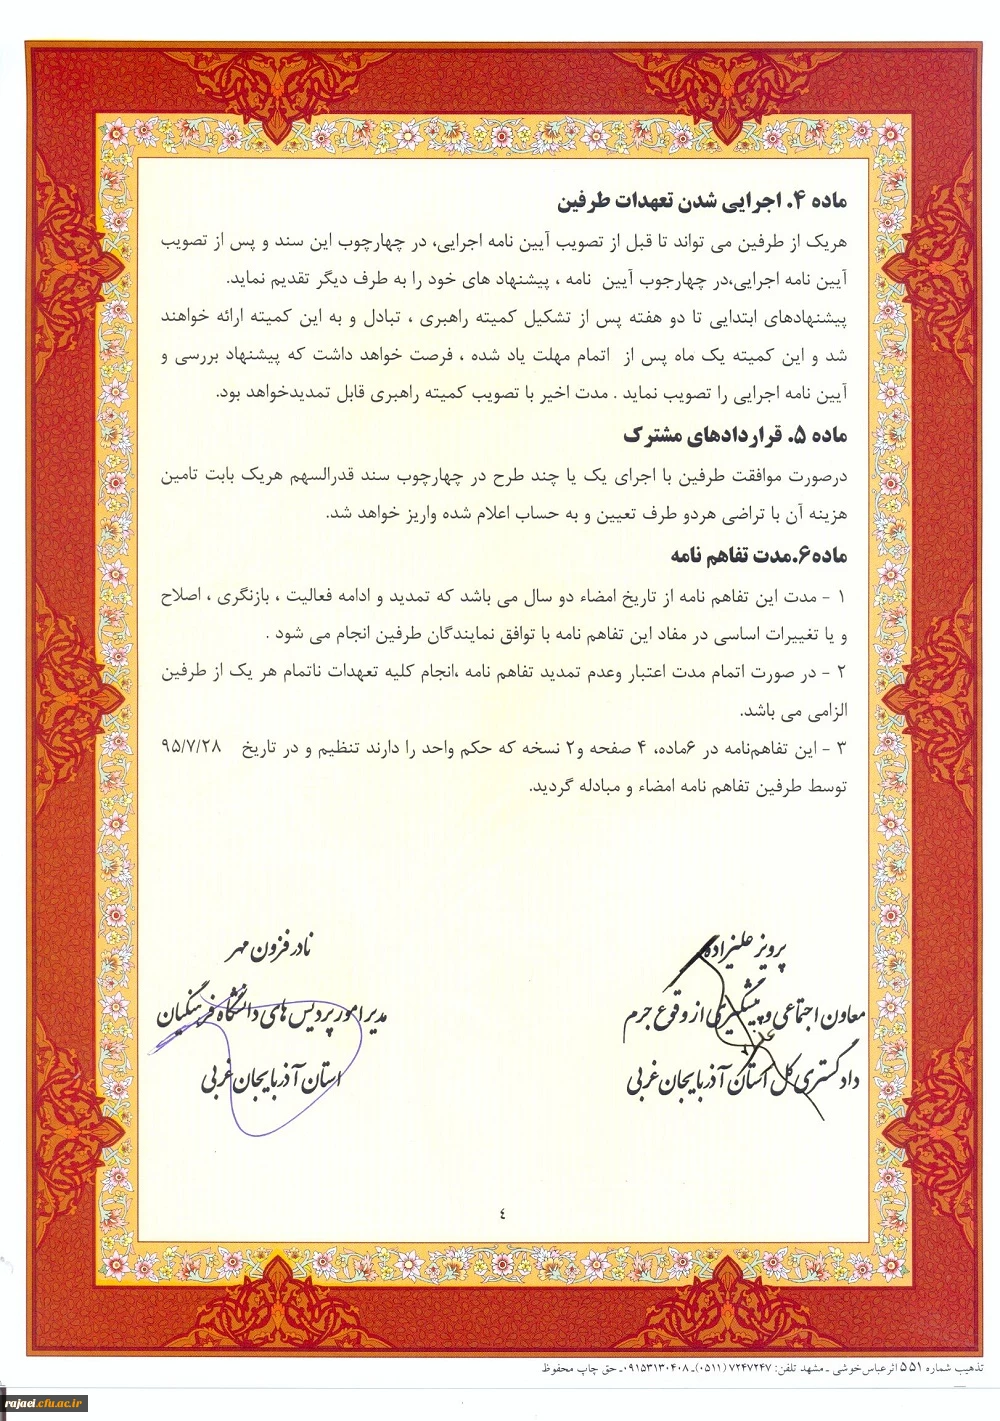 ماده ۴. اجرایی شدن تعهدات طرفین
هریک از طرفین می تواند تا قبل از تصویب آیین نامه اجرایی، در چهارچوب این سند و پس از تصویب
آیین نامه اجرایی،در چهارجوب آیین نامه ، پیشنهاد های خود را به طرف دیگر تقدیم نماید.
پیشنهادهای ابتدایی تا دو هفته پس از تشکیل کمیته راهبری ، تبادل و به این کمیته ارائه خواهند
شد و این کمیته یک ماه پس از اتمام مهلت یاد شده ، فرصت خواهد داشت که پیشنهاد بررسی و
آیین نامه اجرایی را تصویب نماید . مدت اخیر با تصویب کمیته راهبری قابل تمدیدخواهد بود.
ماده ۵. قراردادهای مشترک
درصورت موافقت طرفین با اجرای یک یا چند طرح در چهارچوب سند قدرالسهم هریک بابت تامین
هزینه آن با تراضی هردو طرف تعیین و به حساب اعلام شده واریز خواهد شد.
ماده۶.مدت تفاهم نامه
۱ - مدت این تفاهم نامه از تاریخ امضاء دو سال می باشد که تمدید و ادامه فعالیت ، بازنگری ، اصلاح
و یا تغییرات اساسی در مفاد این تفاهم نامه با توافق نمایندگان طرفین انجام می شود .
۲ - در صورت اتمام مدت اعتبار وعدم تمدید تفاهم نامه ،انجام کلیه تعهدات ناتمام هر یک از طرفین
الزامی می باشد.
۳ - این تفاهم‌نامه در ۶ماده، ۴ صفحه و۲ نسخه که حکم واحد را دارند تنظیم و در تاریخ ۹۵/۷/۲۸
توسط طرفین تفاهم نامه امضاء و مبادله گردید.
پرویز علیزاده
معاون اجتماعی و پیشگیری از وقوع جرم
دادگستری کل استان آذربایجان غربی
نادر فزون مهر
مدیر امور پردیس های دانشگاه فرهنگیان
استان آذربایجان غربی
٤
تذهیب شماره ۵۵۱ اثرعباس خوشی ـ مشهد تلفن: ۷۲۴۷۲۴۷ (۰۵۱۱)ـ ۰۹۱۵۳۱۳۰۴۰۸ـ حق چاپ محفوظ
rajaei.cfu.ac.ir